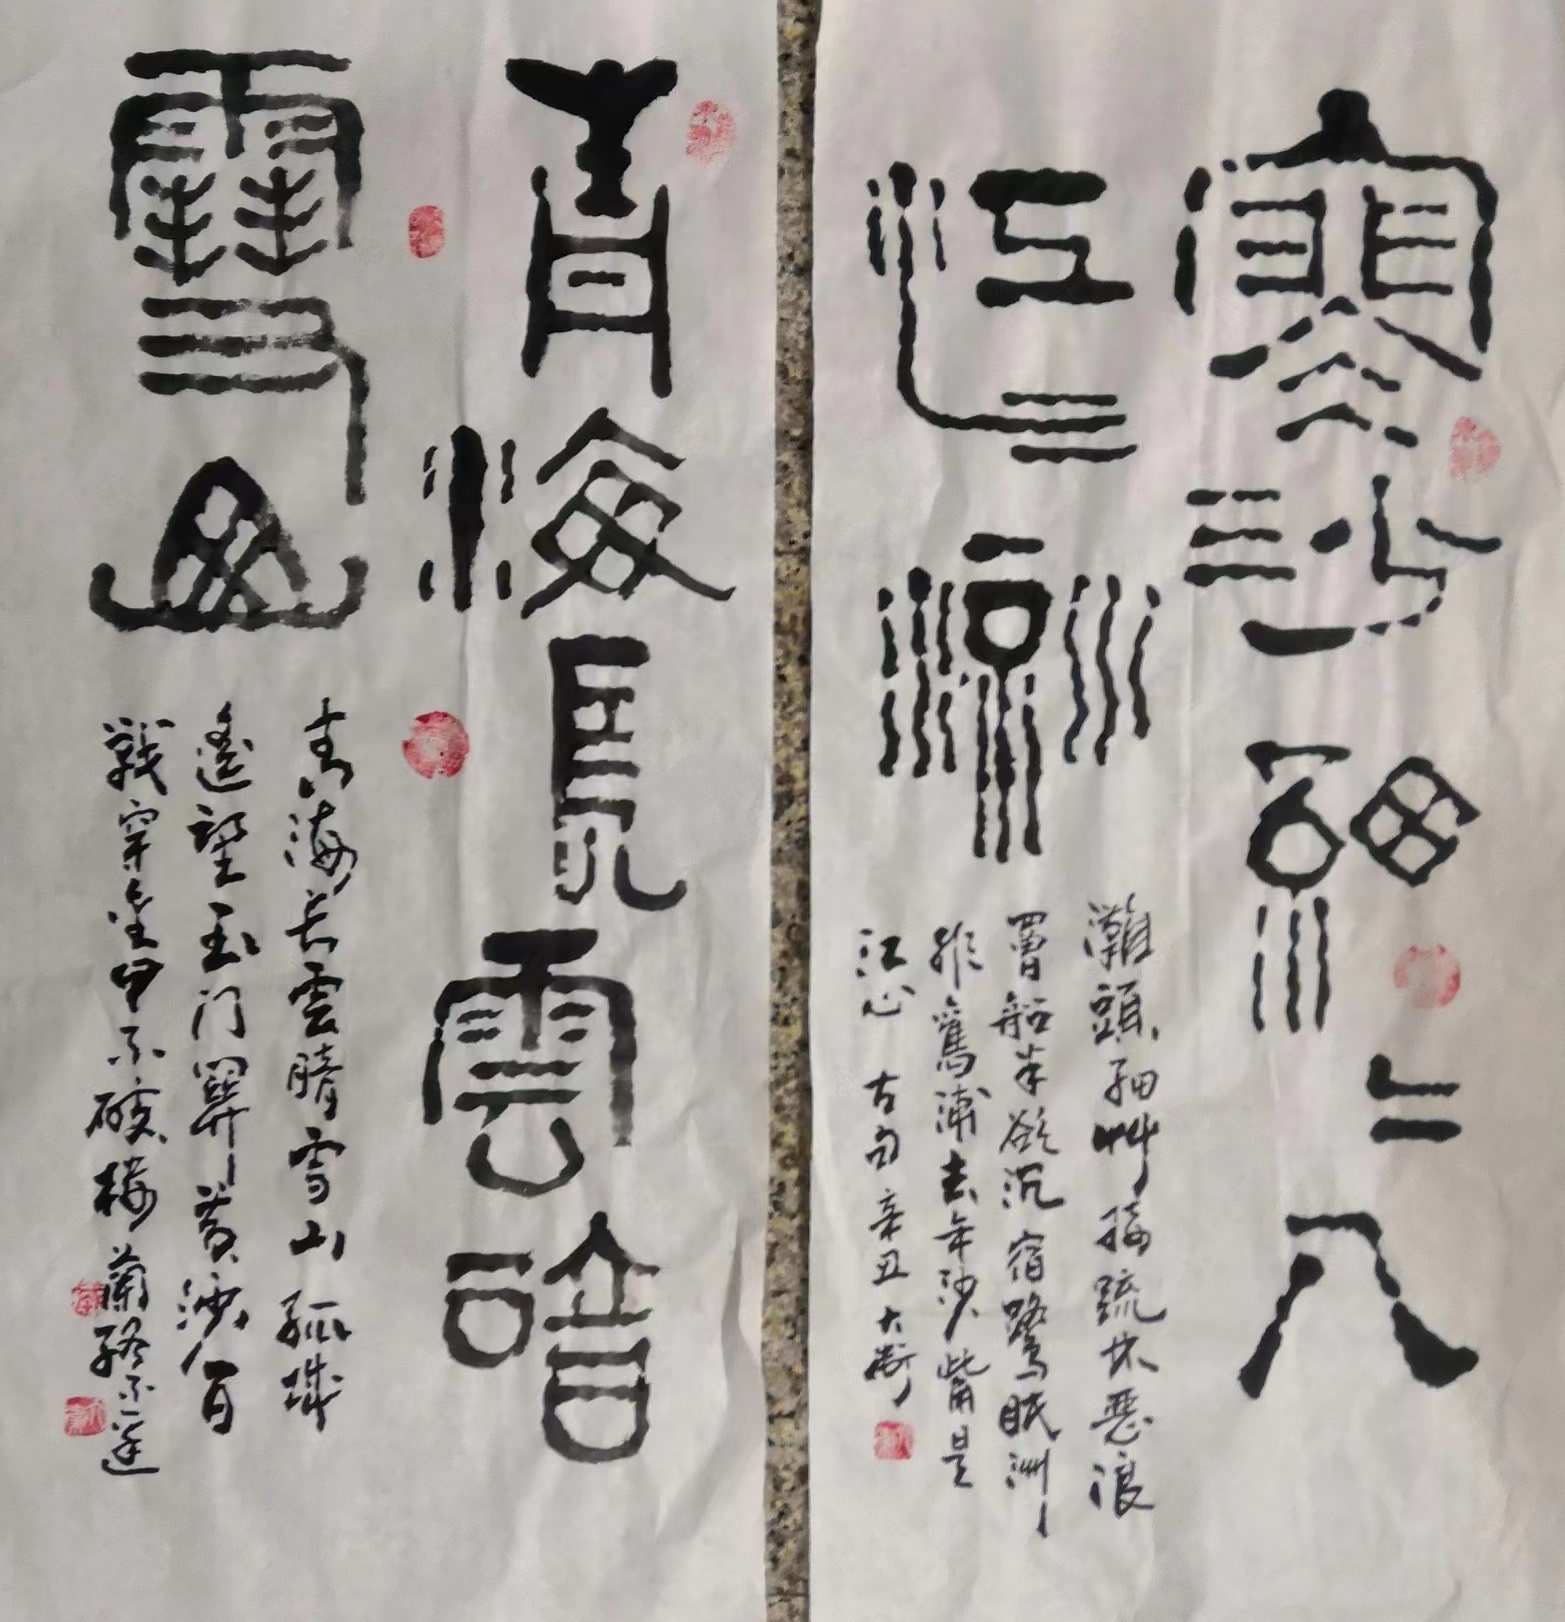 寒沙細〻入
江流
灘頭細艸接疏林惡浪
罾船半欲沉宿鷺眠洲
非舊浦去年沙觜是
江心 古句 辛丑
青海長雲暗
雪山
青海长雲暗雪山孤城
遙望玉门關黃沙百
戰穿金甲不破樓蘭終不還